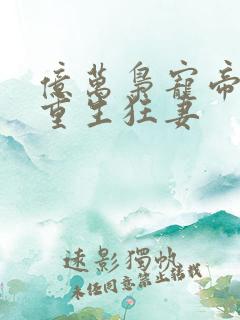 億萬梟寵帝
重生狂妻
遠影獨帆
未任同意禁止轉載